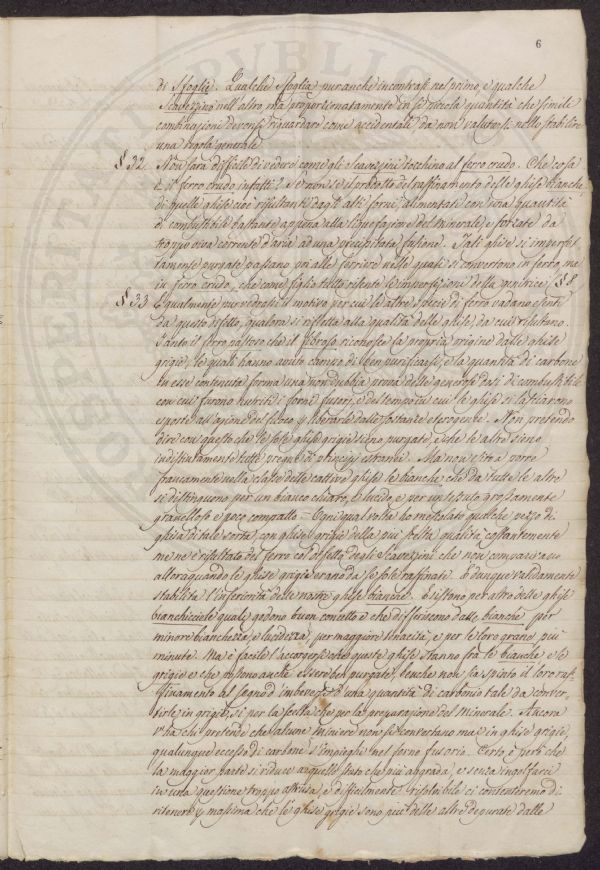 6
di Sfoglie. Qualche Sfoglia pur anche incontrasi nel primo, e qualche
Scavezzino nell'altro ma proporzionatamente in sì piccola quantità che simile
combinazioni devonsi riguardare come accidentali da non valutarsi nello stabilire
una regola generale
§ 32. Non sarà difficile di vedere come gli Scavezzini tocchino al ferro crudo. Che cosa
è il ferro crudo infatti? Se non se il prodotto del raffinamento delle ghise bianche,
di quelle ghise cioè risultanti dagli alti forni alimentati con una quantità
di combustibile bastante appena alla liquefazione del Minerale e forzate da
troppo viva corrente d'aria ad una precipitata fusione. Tali ghise sì imperfet-
tamente purgate passano poi alle ferriere nelle quali si convertono in ferro, ma
in ferro crudo, che come figlio tutte ritiene le imperfezioni della genitrice § 8.
§ 33. Egualmente può vedersi il motivo per cui le altre specie di ferro vadano esenti
da questo difetto, qualora si rifletta alla qualità delle ghise, da cui risultano.
Tanto il ferro nervoso che il fibroso riconosce la propria origine dalle ghise
grigie, le quali hanno avuto campo di ben purificarsi, e la quantità di carbone
in esse contenuta forma una non dubbia prova delle generose dosi di combustibile
con cui furono nutriti i forni fusori, e del tempo in cui le ghise si lasciarono
esposte all'azione del fuoco p liberarle dalle sostanze eterogenee. Non pretendo
dire con questo che le sole ghise grigie sieno purgate, e che le altre sieno
indistintamente tutte pregne di principj estranei. Ma non esito a porre
francamente nella classe delle cattive ghise le bianche che da tutte le altre
si distinguono per un bianco chiaro, e lucido, e per un tessuto grossamente
granelloso e poco compatto = Ogni qual volta ho mescolato qualche pezzo di
ghisa di tale sorta, con ghise grigie della più scelta qualità costantemente
me ne è risultato del ferro col difetto degli Scavezzini che non compariva
allora quando le ghise grigie erano da se sole raffinate. È dunque validamente
stabilita l'inferiorità delle nostre ghise bianche. Esistono per altro delle ghise
bianchiccie le quali godono buon concetto e che differiscono dalle bianche per
minore bianchezza, e lucidezza, per maggiore tenacità, e per le loro grana più
minute. Ma è facile l'accorgersi che queste ghise stanno fra le bianche e le
grigie e che possono anche essere ben purgate, benche non sia spinto il loro raf-
finamento al segno d'imbeversi d'una quantità di carbonio tale da conver-
tirle in grigie, sì per la scelta che per la preparazione del Minerale. Ancora
v'ha chi pretende che alcune miniere non si convertano mai in ghise grigie,
qualunque eccesso di carbone s'impieghi nel forno fusorio. Certo è però che
la maggior parte si riduce a quello stato che più aggrada, e senza ingolfarci
in una questione troppo astrusa, e difficilmente risolubile ci contenteremo di
ritenere p massima che le ghise grigie sono più delle altre depurate dalle